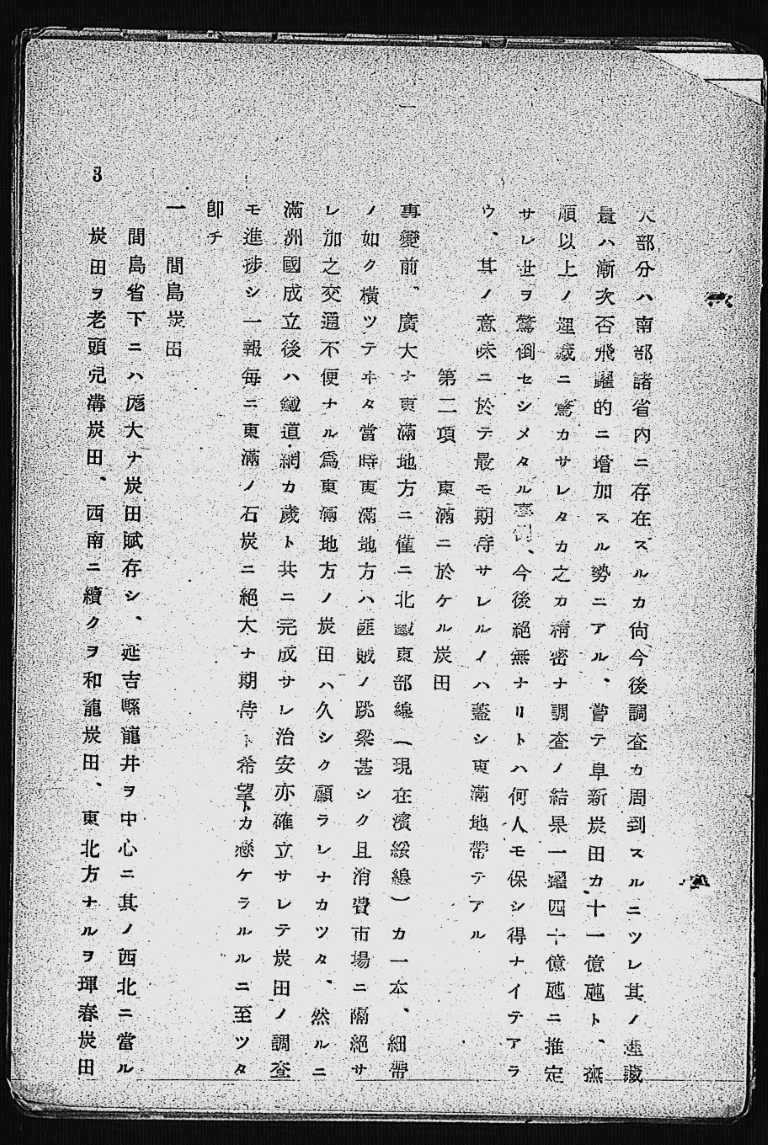 大部分ハ南部諸省内ニ存在スルカ尙今後調査カ周到スルニツレ其ノ埋藏
量ハ漸次否飛躍的ニ增加スル勢ニアル、嘗テ阜新炭田カ十一億瓲ト、撫
順以上ノ埋藏ニ驚カサレタカ之カ精密ナ調査ノ結果一躍四十億瓲ニ推定
サレ世ヲ驚倒セシメタル事例、今後絕無ナリトハ何人モ保シ得ナイテアラ
ウ、其ノ意味ニ於テ最モ期待サレルノハ蓋シ東滿地帶テアル
第二項 東滿ニ於ケル炭田
事變前、廣大ナ東滿地方ニ僅ニ北鐵東部線(現在濱綏線)カ一本、細帶
ノ如ク橫ツテヰタ當時東滿地方ハ匪賊ノ跳梁甚シク且消費市場ニ隔絕サ
レ加之交通不便ナル爲東滿地方ノ炭田ハ久シク顧ラレナカツタ、然ルニ
滿洲國成立後ハ鐵道網カ歲ト共ニ完成サレ治安亦確立サレテ炭田ノ調査
モ進捗シ一報每ニ東滿ノ石炭ニ絕大ナ期待ト希望トカ懸ケラルルニ至ツタ
卽チ
一 間島炭田
間島省下ニハ厖大ナ炭田賦存シ、延吉縣龍井ヲ中心ニ其ノ西北ニ當ル
炭田ヲ老頭兒溝炭田、西南ニ續クヲ和龍炭田、東北方ナルヲ琿春炭田
3